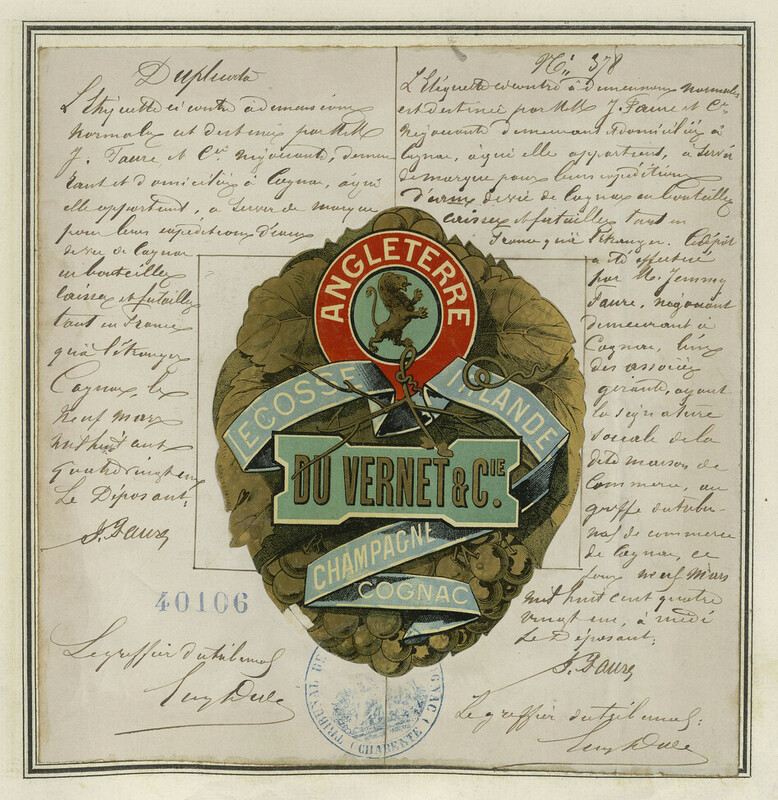 Duplicata
L'Etiquette ci contre à dimensions
normales est destinée par MM
J. Faure et Cie négociants, demeu
rant et domiciliés à Cognac, à qui
elle appartient, à servir de marque
pour leurs expéditions d'eaux
de vie de Cognac
en bouteilles
caisses et futailles
tant en France
qu'à l'étranger
Cognac, le
neuf mars
mil huit cent
quatre vingt un
Le Déposant:
J. Faure
40106
Le greffier du tribunal
No 378
L'Etiquette ci contre à dimensions normales
est destinée par MM J. Faure et Cie
négociants demeurant & domiciliés à
Cognac, à qui elle appartient, à servir
de marque pour leurs expéditions
d'eaux de vie de Cognac en bouteilles
caisses et futailles tant en
France qu'à l'étranger. Ce dépôt
a été effectué
par M. Jemmy
Faure, négociant
demeurant à
Cognac, l'un
des associés
gérants, ayant
la signature
sociale de la
dite maison de
Commerce, au
greffe du tribu-
nal de commerce
de Cognac, ce
jour neuf Mars
mil huit cent quatre
vingt un, à midi
Le Déposant:
J. Faure
Le greffier du tribunal:
ANGLETERRE
ECOSSE
IRLANDE
DU VERNET & CIE.
CHAMPAGNE
COGNAC
TRIBUNAL DE
COGNAC (CHARENTE)